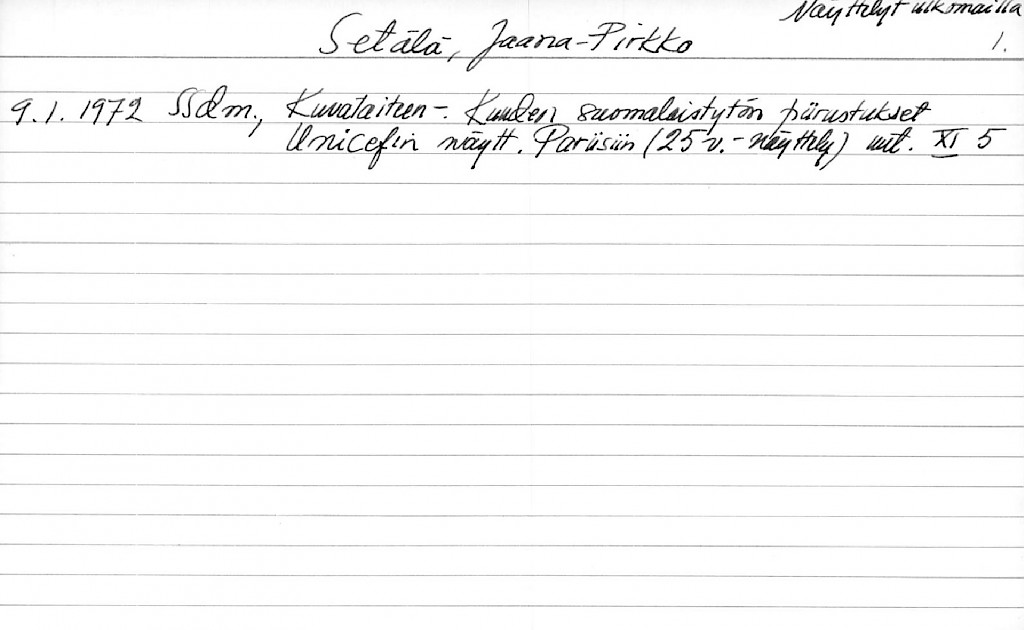 Näyttelyt ulkomailla
Setälä, Jaana-Pirkko 1.
9.1.1972 SSdm., Kuvataiteen-. Kuuden suomalaistytön piirustukset
Unicefin näytt. Pariisiin (25-v.-näyttely) uut. XI 5